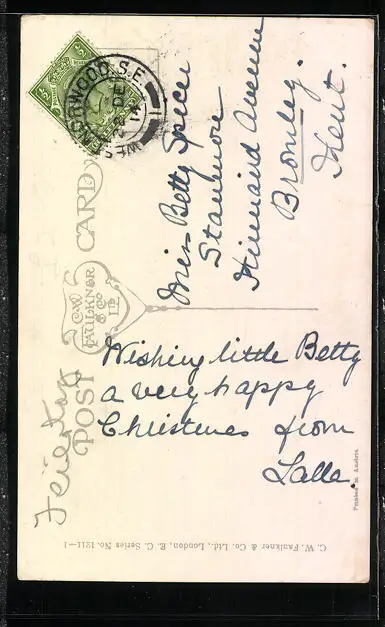 POST CARD
C.W.
FAULKNER
& Co
LD
WEST NORWOOD. S.E.
DE
Miss Betty Spicer
Stanmore
Kinnaird Avenue
Bromley.
Kent.
Wishing little Betty
a very happy
Christmas from
Lalla.
Feiertag
Printed in Austria
C. W. Faulkner & Co. Ltd., London, E. C. Series No. 1211—1